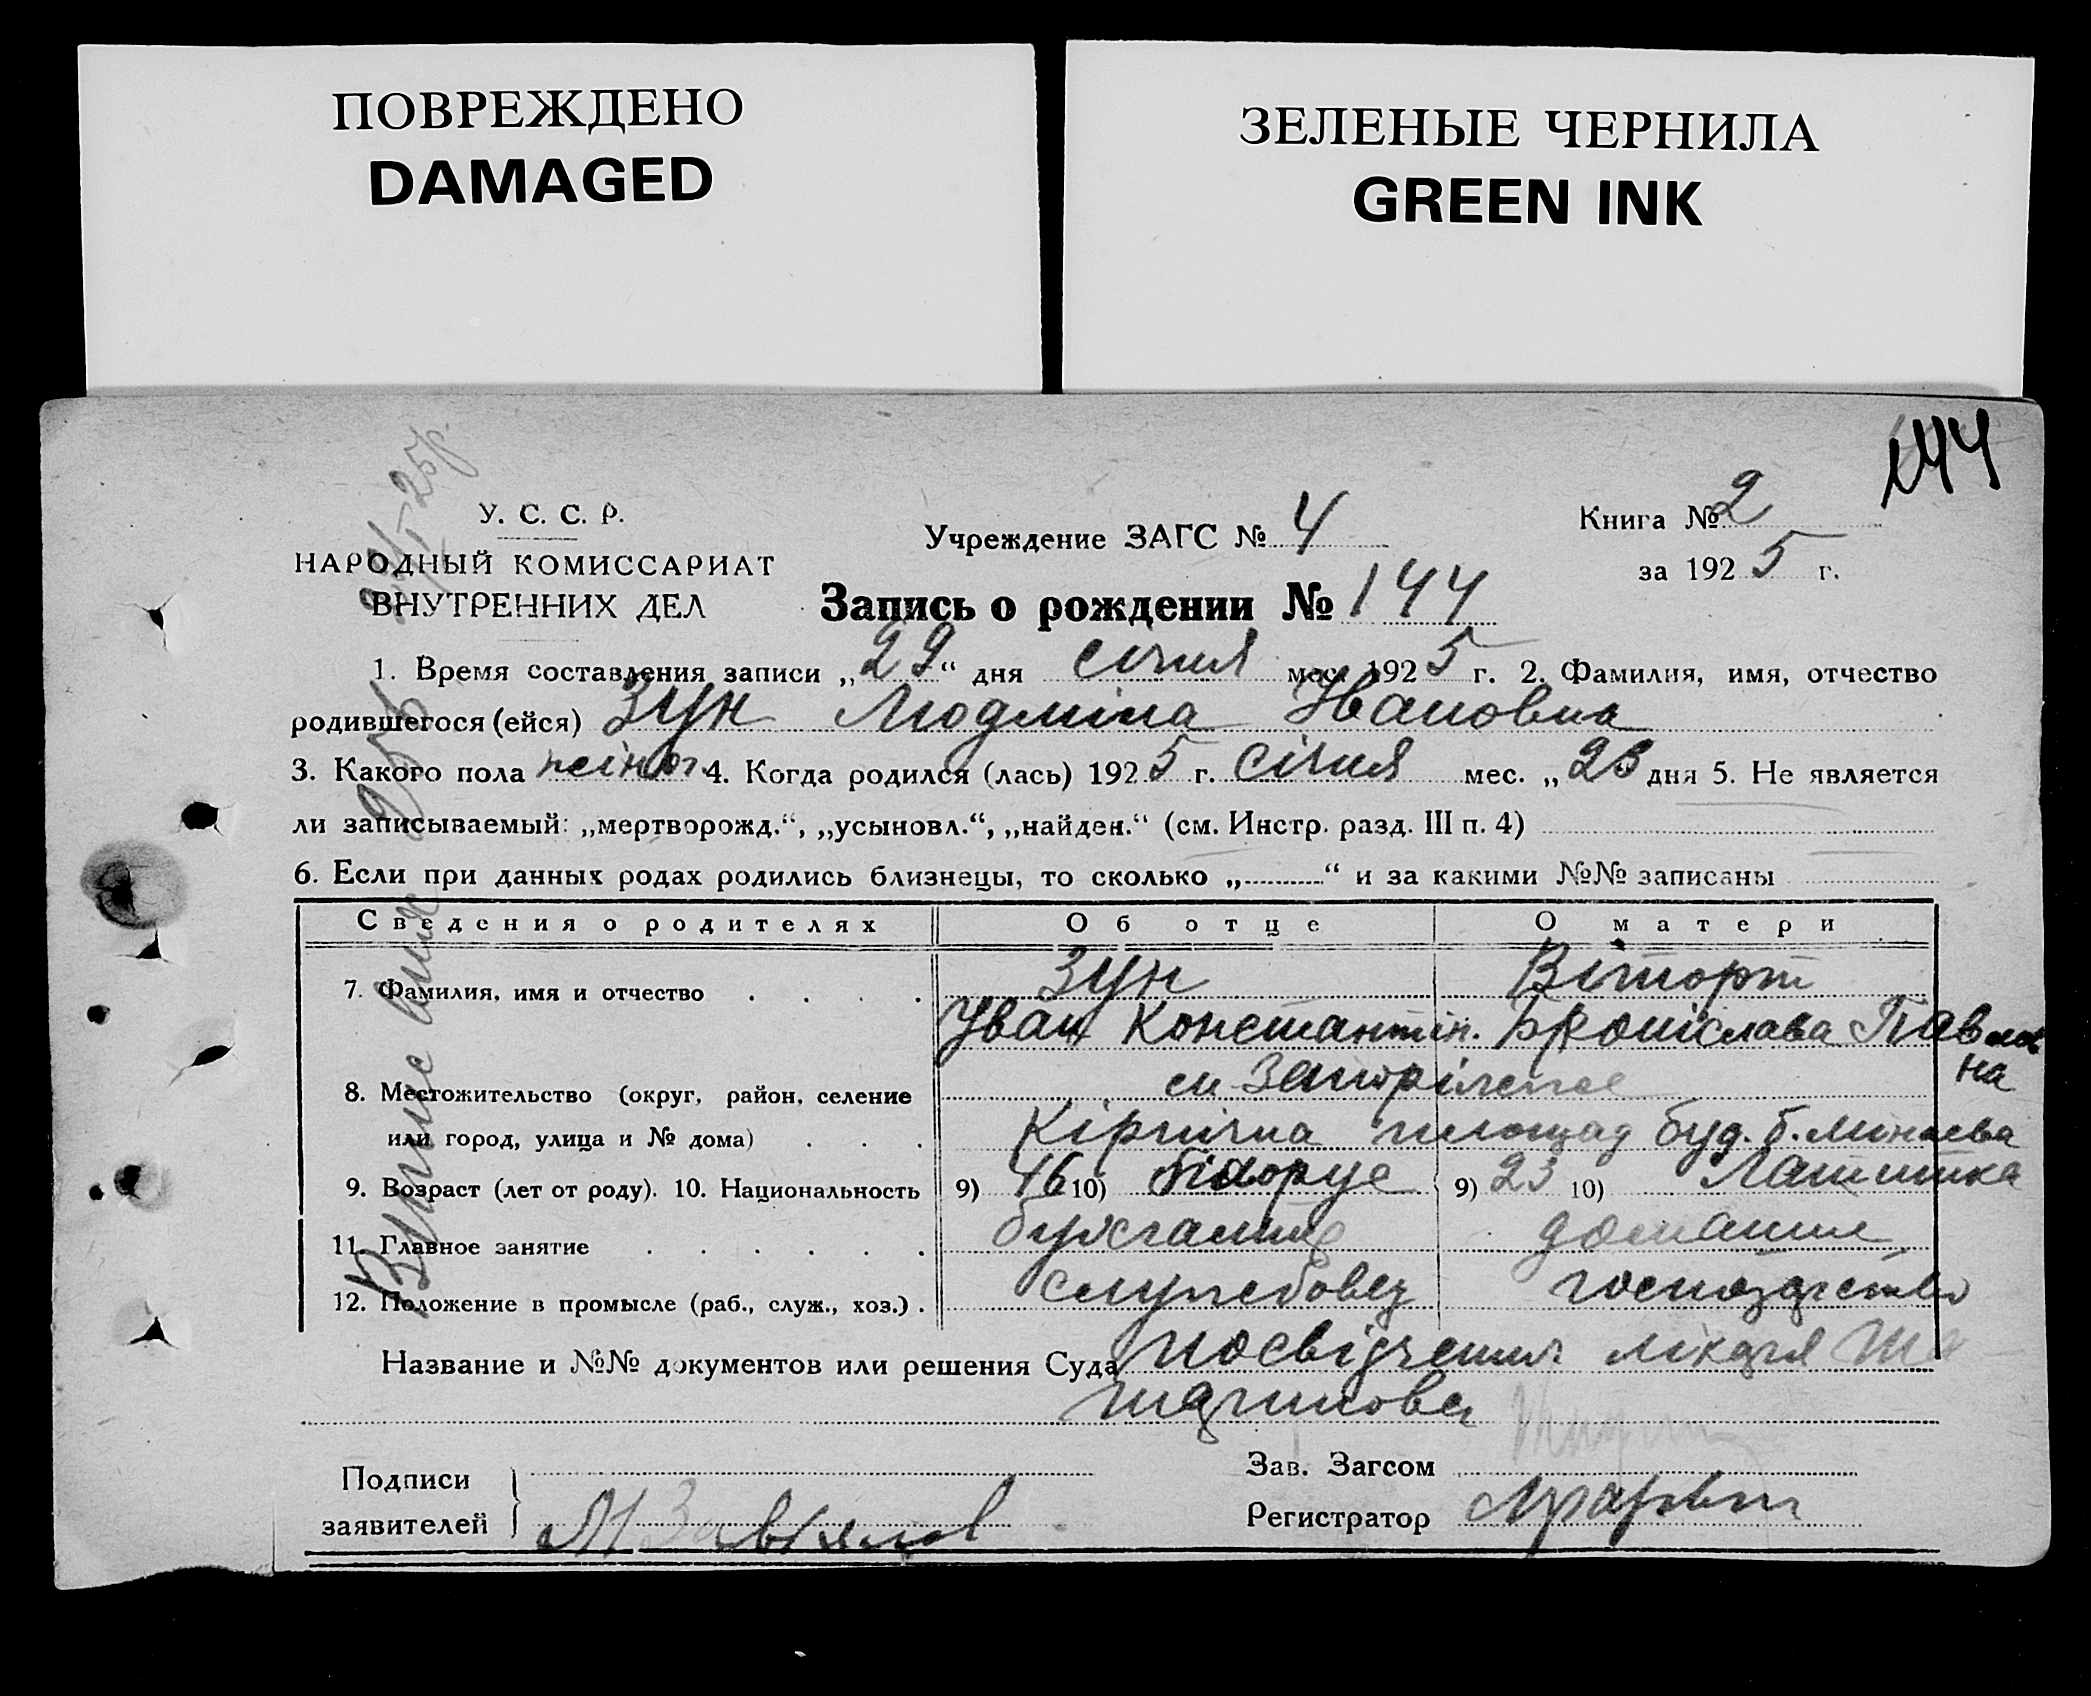 ПОВРЕЖДЕНО
DAMAGED
ЗЕЛЕНЫЕ ЧЕРНИЛА
GREEN INK
144
У. С. С. Р.
НАРОДНЫЙ КОМИССАРИАТ
ВНУТРЕННИХ ДЕЛ
Учреждение ЗАГС № 4
Книга № 2
за 1925 г.
Запись о рождении № 144
1. Время составления записи „29“ дня січня мес. 1925 г. 2. Фамилия, имя, отчество
родившегося (ейся) Зун Людміла Івановна
3. Какого пола жіноч. 4. Когда родился (лась) 1925 г. січня мес. „23 дня 5. Не является
ли записываемый: „мертворожд.“, „усыновл.“, „найден.“ (см. Инстр. разд. III п. 4)
6. Если при данных родах родились близнецы, то сколько „ “ и за какими №№ записаны
Сведения о родителях Об отце О матери
7. Фамилия, имя и отчество Зун Віторт
Іван Константін. Броніслава Павлов
на
8. Местожительство (округ, район, селение ст Запоріжжє
или город, улица и № дома) Кірпична площад буд. б. Минаева
9. Возраст (лет от роду). 10. Национальность 9) 46 10) білорус 9) 23 10) Латишка
11. Главное занятие бухгалтер домашнє
12. Положение в промысле (раб., служ., хоз.) службовец господарство
Название и №№ документов или решения Суда посвідчення лікаря
Подписи
заявителей
Зав. Загсом
Регистратор